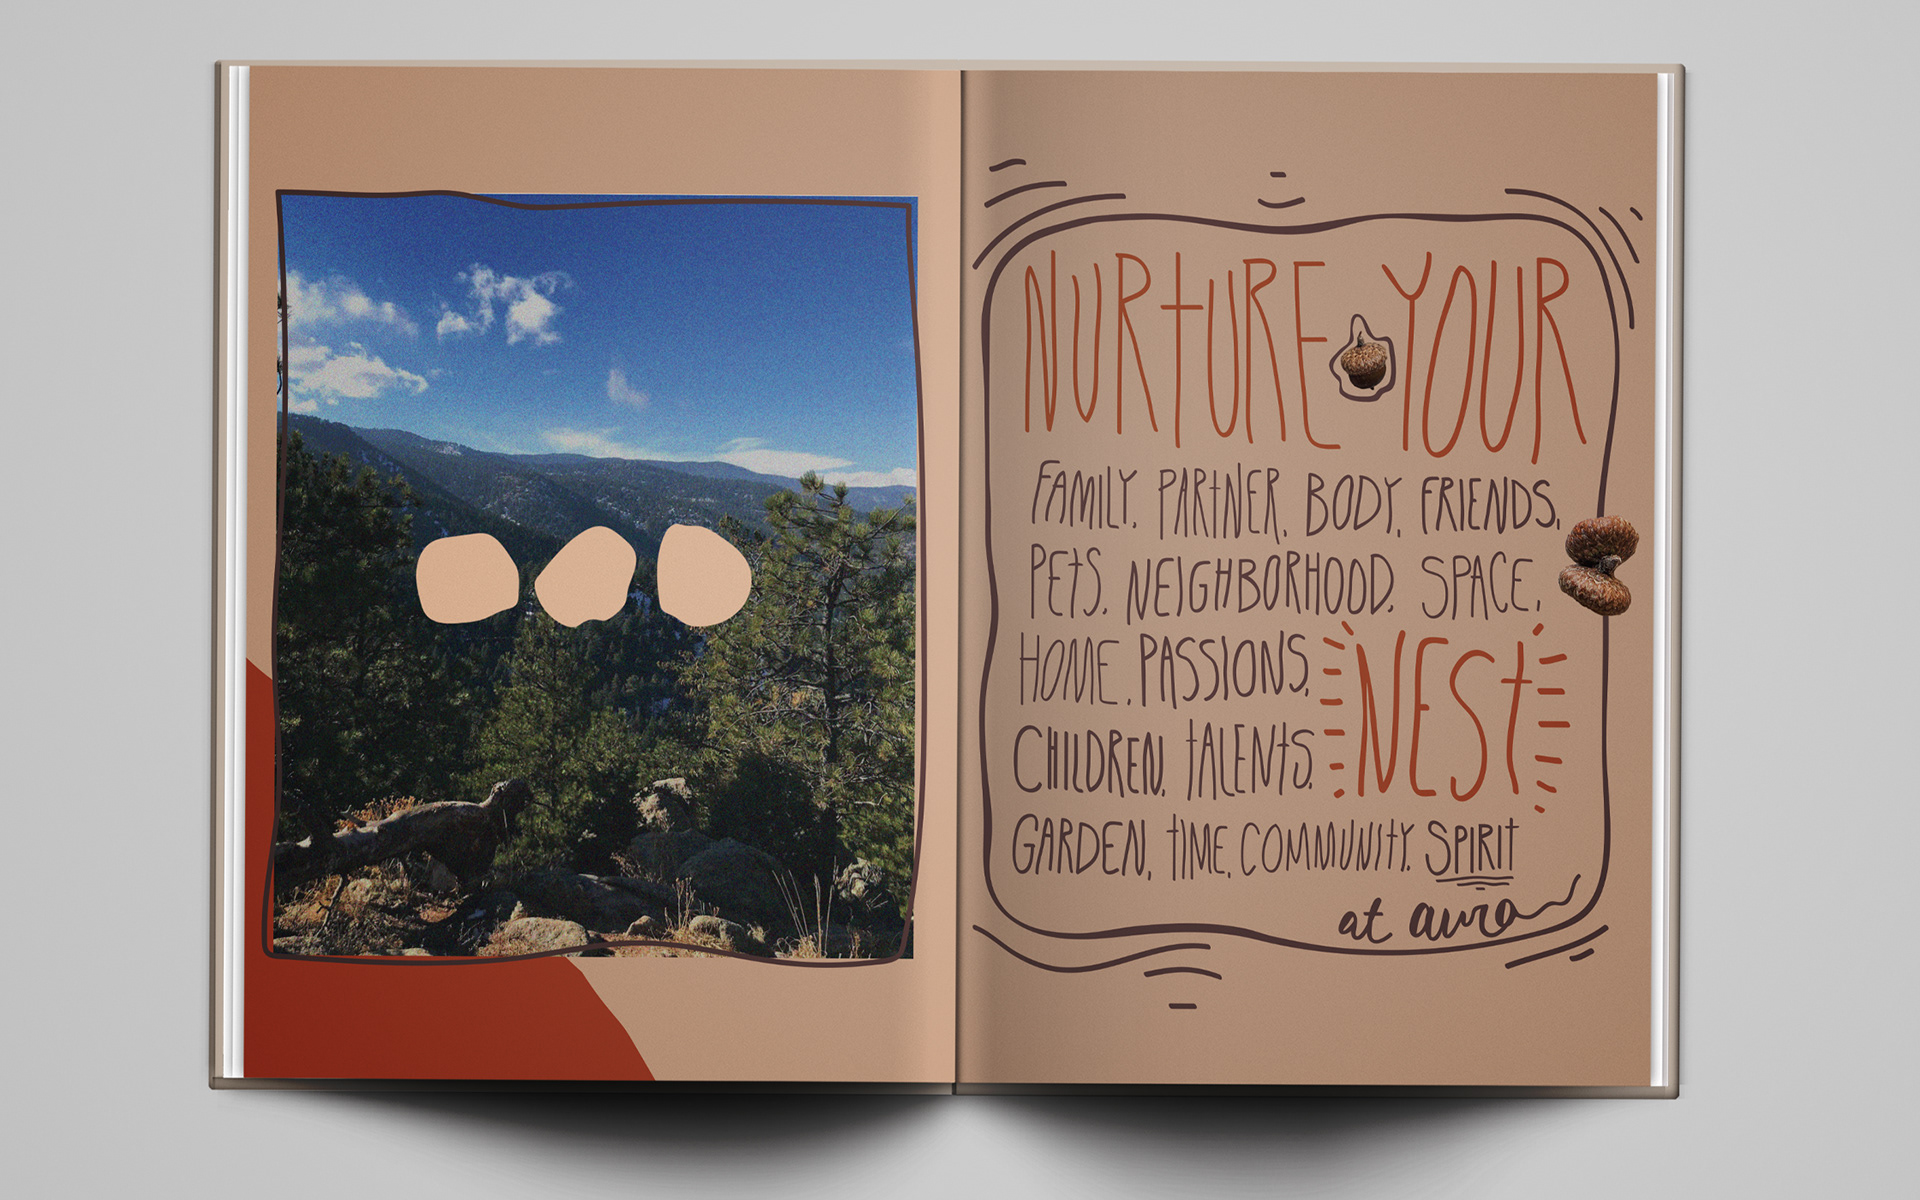 NURTURE YOUR
FAMILY, PARTNER, BODY, FRIENDS,
PETS, NEIGHBORHOOD, SPACE,
HOME, PASSIONS, NEST
CHILDREN, TALENTS,
GARDEN, TIME, COMMUNITY, SPIRIT
at aura